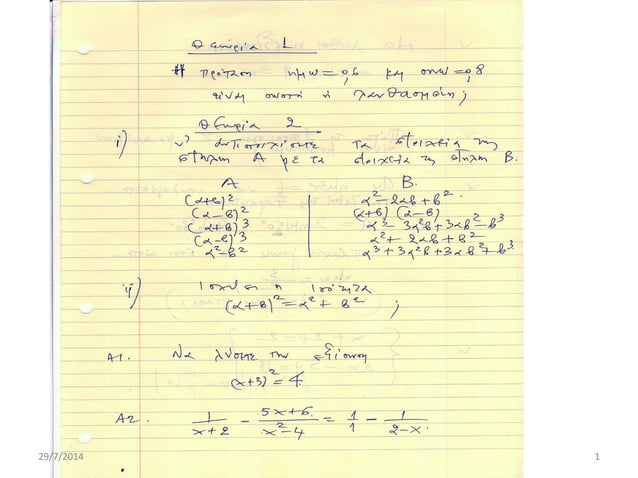 Θεωρία 1
Η πρόταση ημω = 0,6 και συνω = 0,8
είναι σωστή ή λανθασμένη;
Θεωρία 2
i) ν' αντιστοιχίσετε τα στοιχεία της
στήλης Α με τα στοιχεία της στήλης Β.
Α Β.
(α+β)² α²-2αβ+β².
(α-β)² (α+β)(α-β)
(α+β)³ α³-3α²β+3αβ²-β³
(α-β)³ α²+2αβ+β²
α²-β² α³+3α²β+3αβ²+β³
ii) Ισχύει η ισότητα
(α+β)²=α²+β² ;
Α1. Να λύσετε την εξίσωση
(x+3)²=4
Α2. 1/(x+2) - (5x+6)/(x²-4) = 1/1 - 1/(2-x).
29/7/2014 1